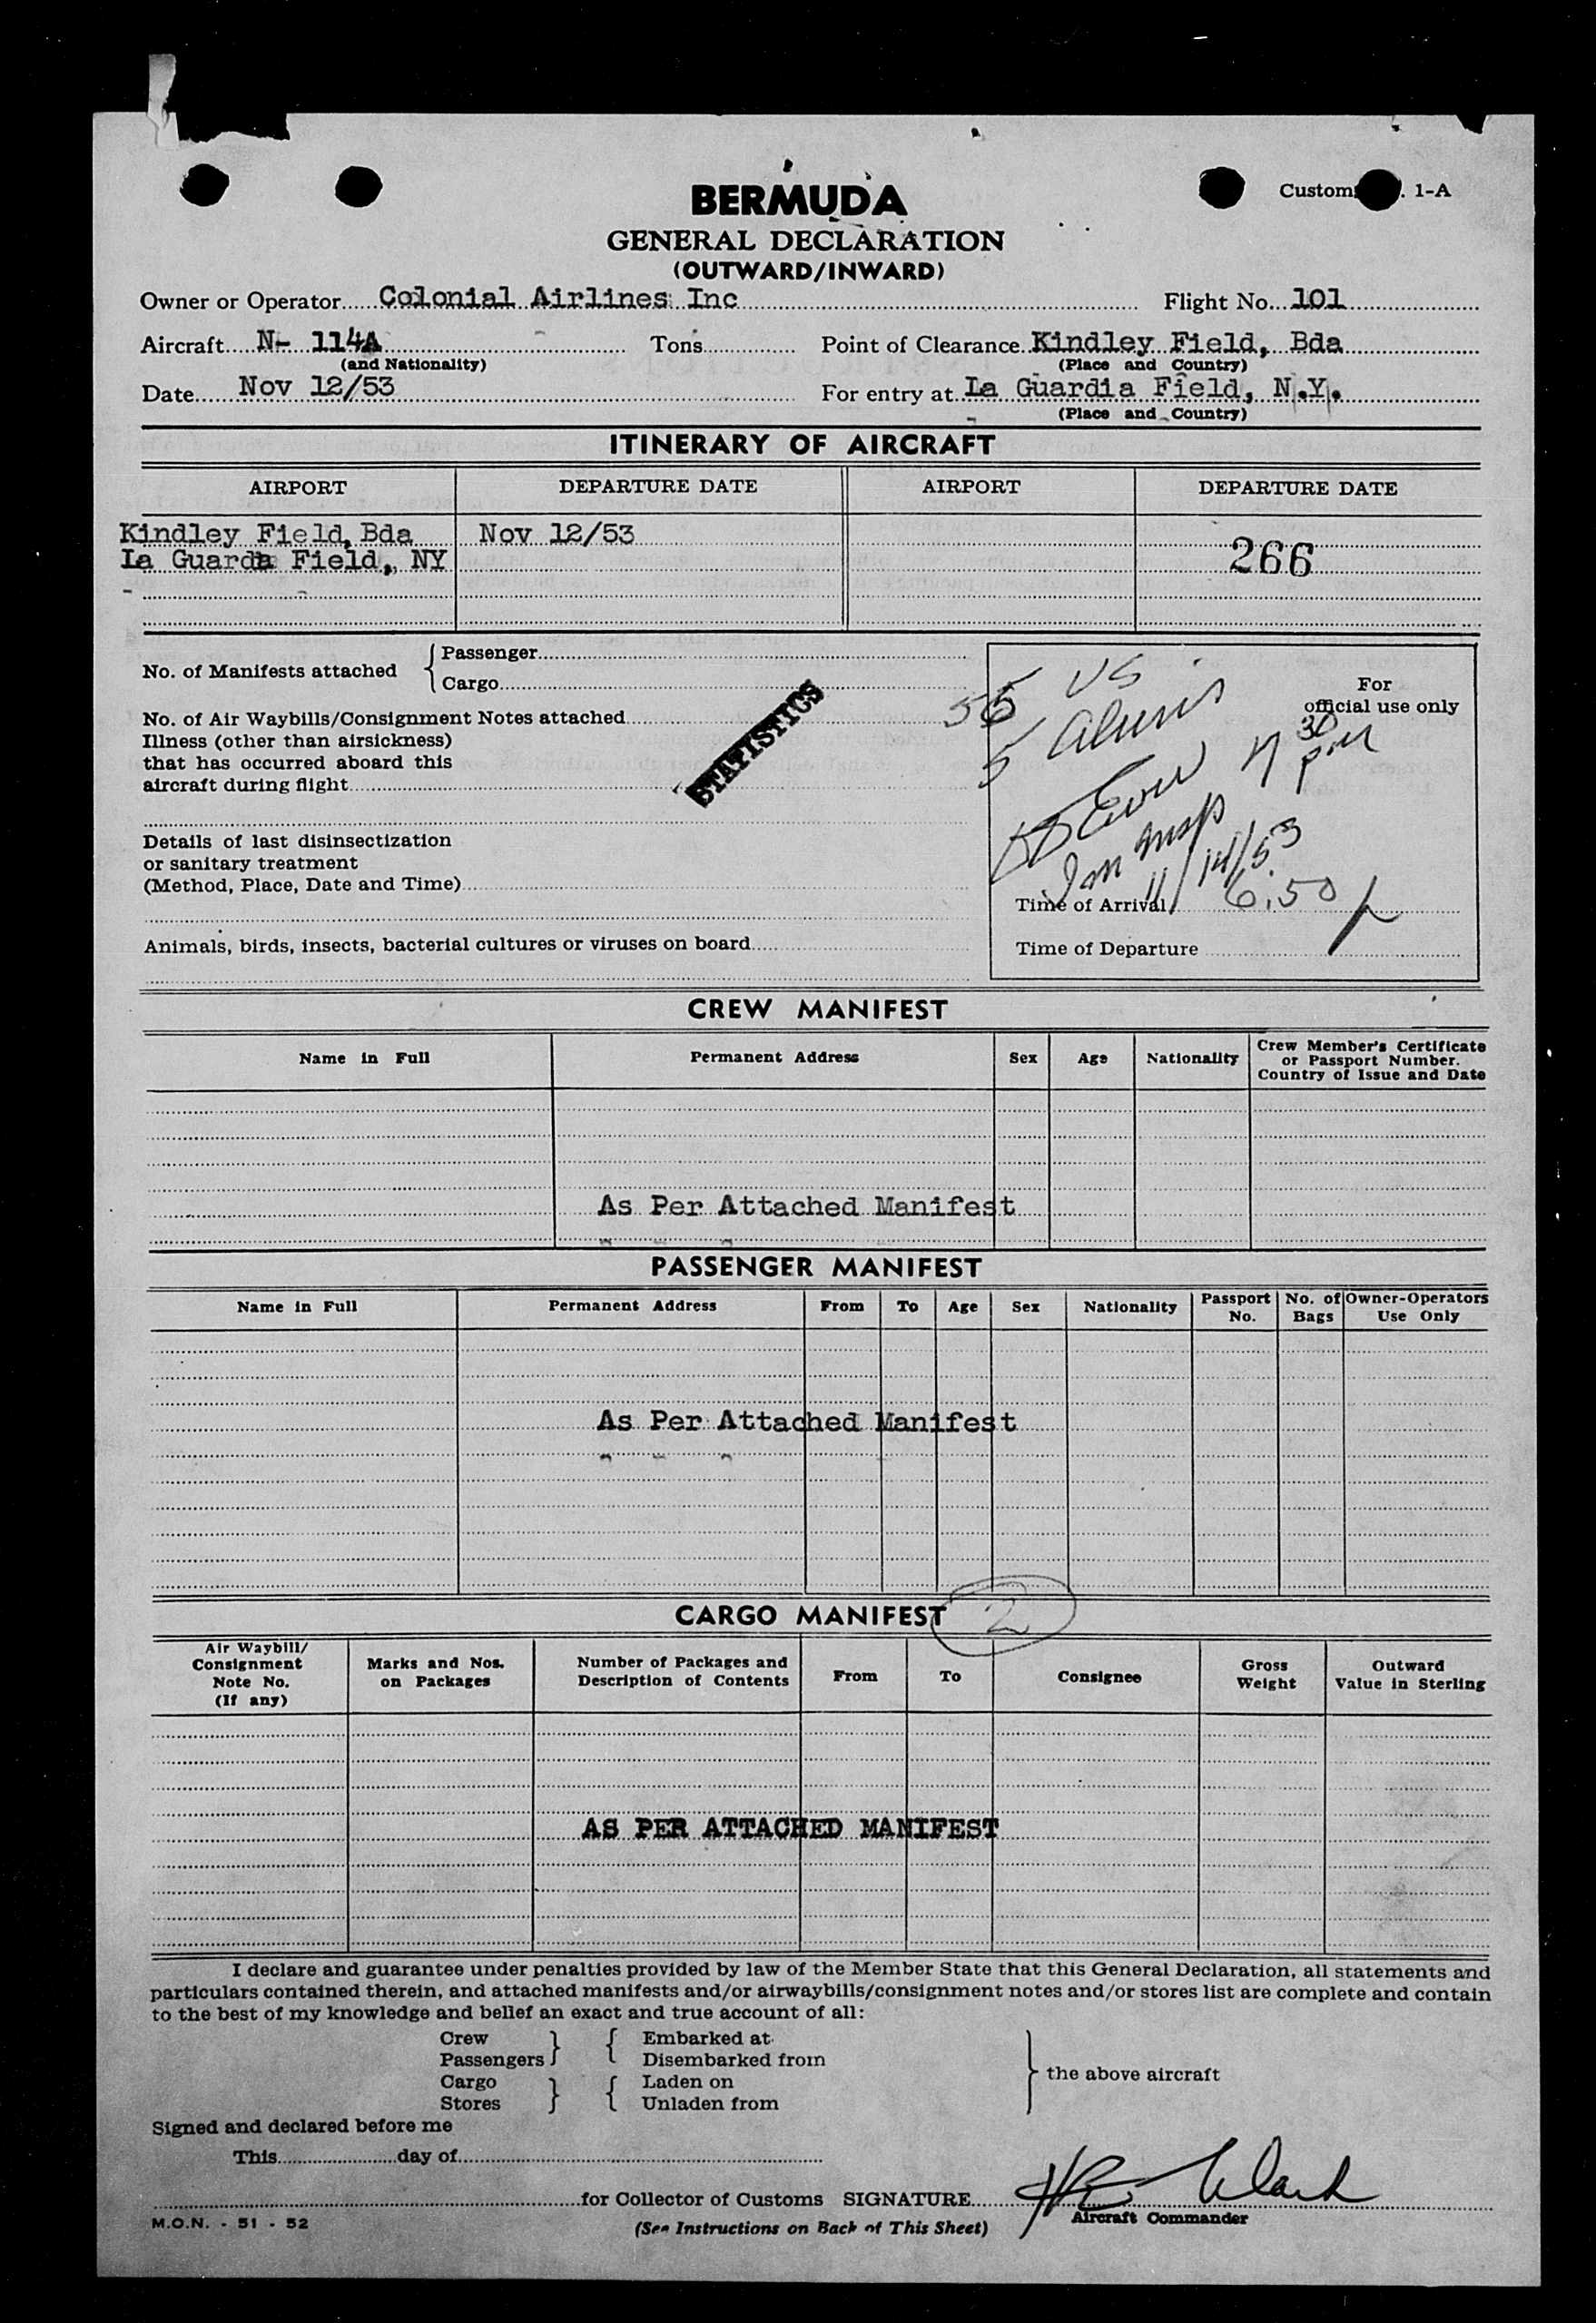 BERMUDA
Custom . 1-A
GENERAL DECLARATION
(OUTWARD/INWARD)
Owner or Operator Colonial Airlines Inc Flight No. 101
Aircraft N- 114A Tons Point of Clearance Kindley Field, Bda
(and Nationality) (Place and Country)
Date Nov 12/53 For entry at La Guardia Field, N.Y.
(Place and Country)
ITINERARY OF AIRCRAFT
AIRPORT DEPARTURE DATE AIRPORT DEPARTURE DATE
Kindley Field, Bda Nov 12/53
La Guarda Field, NY 266
No. of Manifests attached { Passenger
Cargo
No. of Air Waybills/Consignment Notes attached
Illness (other than airsickness)
that has occurred aboard this
aircraft during flight
STATISTICS
Details of last disinsectization
or sanitary treatment
(Method, Place, Date and Time)
Animals, birds, insects, bacterial cultures or viruses on board
For
official use only
US
5 aliens
7 30 pm
Imm Insp
Time of Arrival 6.50 p
Time of Departure
CREW MANIFEST
Name in Full Permanent Address Sex Age Nationality Crew Member's Certificate
or Passport Number.
Country of Issue and Date
As Per Attached Manifest
PASSENGER MANIFEST
Name in Full Permanent Address From To Age Sex Nationality Passport No. No. of Bags Owner-Operators Use Only
As Per Attached Manifest
CARGO MANIFEST 2
Air Waybill/
Consignment
Note No.
(If any)
Marks and Nos.
on Packages
Number of Packages and
Description of Contents
From To Consignee
Gross
Weight
Outward
Value in Sterling
AS PER ATTACHED MANIFEST
I declare and guarantee under penalties provided by law of the Member State that this General Declaration, all statements and
particulars contained therein, and attached manifests and/or airwaybills/consignment notes and/or stores list are complete and contain
to the best of my knowledge and belief an exact and true account of all:
Crew } { Embarked at
Passengers Disembarked from
} the above aircraft
Cargo } { Laden on
Stores Unladen from
Signed and declared before me
This day of
for Collector of Customs SIGNATURE Clark
Aircraft Commander
M.O.N. - 51 - 52
(See Instructions on Back of This Sheet)